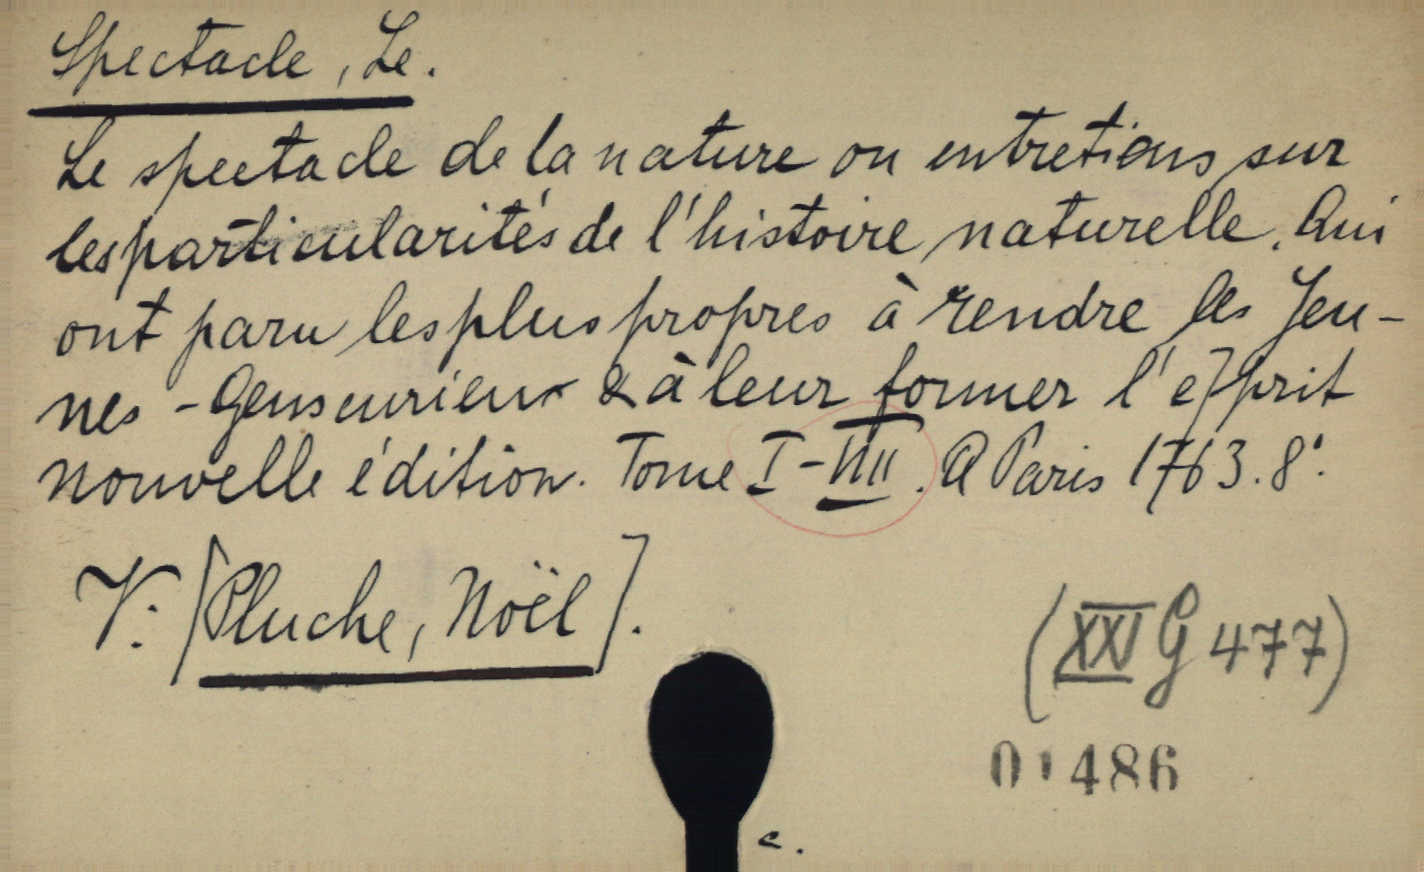 Spectacle, Le.
Le spectacle de la nature ou entretiens sur
les particularités de l'histoire naturelle. Qui
ont paru les plus propres à rendre les Jeu-
nes-Gens curieux & à leur former l'esprit
nouvelle édition. Tome I-VIII. A Paris 1763. 8°.
V. [Pluche, Noël].
(XXI G 477)
01486
c.